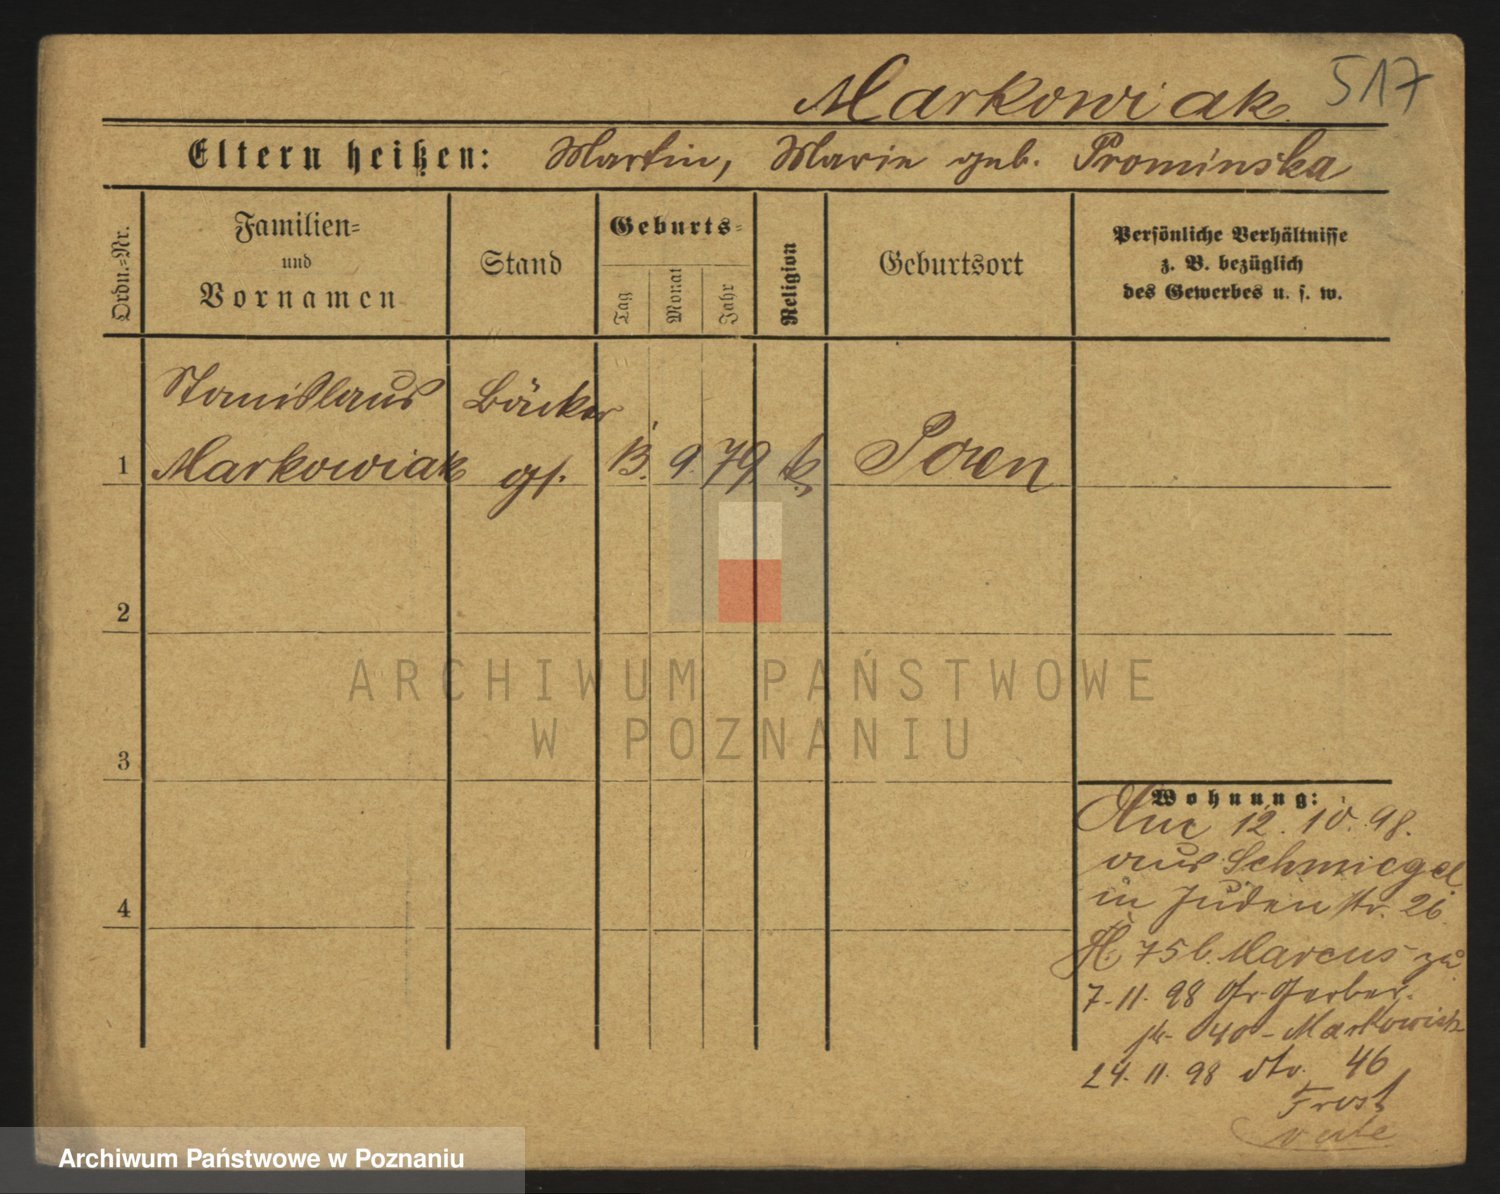 Markowiak 517
Eltern heißen: Martin, Marie geb. Prominska
Ordn.-Nr.
Familien-
und
Vornamen
Stand
Geburts-
Tag
Monat
Jahr
Religion
Geburtsort
Persönliche Verhältnisse
z. B. bezüglich
des Gewerbes u. s. w.
Stanislaus Bäcker
1 Markowiak gs. 13. 9. 79. k. Posen
2
ARCHIWUM PAŃSTWOWE
W POZNANIU
3
Wohnung:
12. 10. 98.
aus Schmiegel
in Judenstr. 26
75 b. Marcus zu
7. 11. 98 Gr Gerber-
str. 40 - Markowiak
24. 11. 98 dto. 46
Frost
4
Archiwum Państwowe w Poznaniu